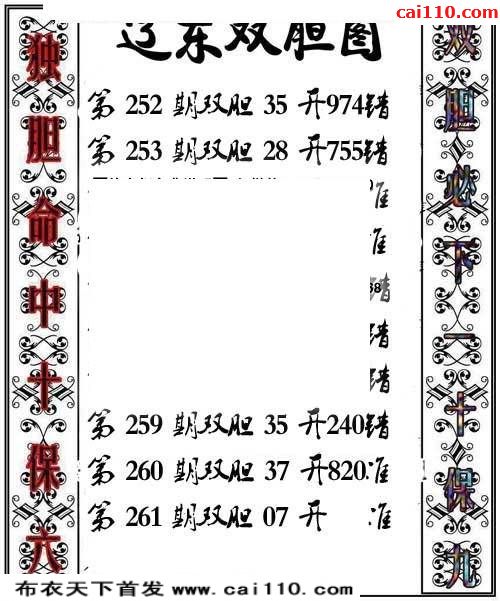 cai110.com
辽东双胆图
独胆命中十保六
双胆必下一十保九
第 252 期双胆 35 开974错
第 253 期双胆 28 开755错
准
准
错
错
错
第 259 期双胆 35 开240错
第 260 期双胆 37 开820准
第 261 期双胆 07 开 准
布衣天下首发 www.cai110.com